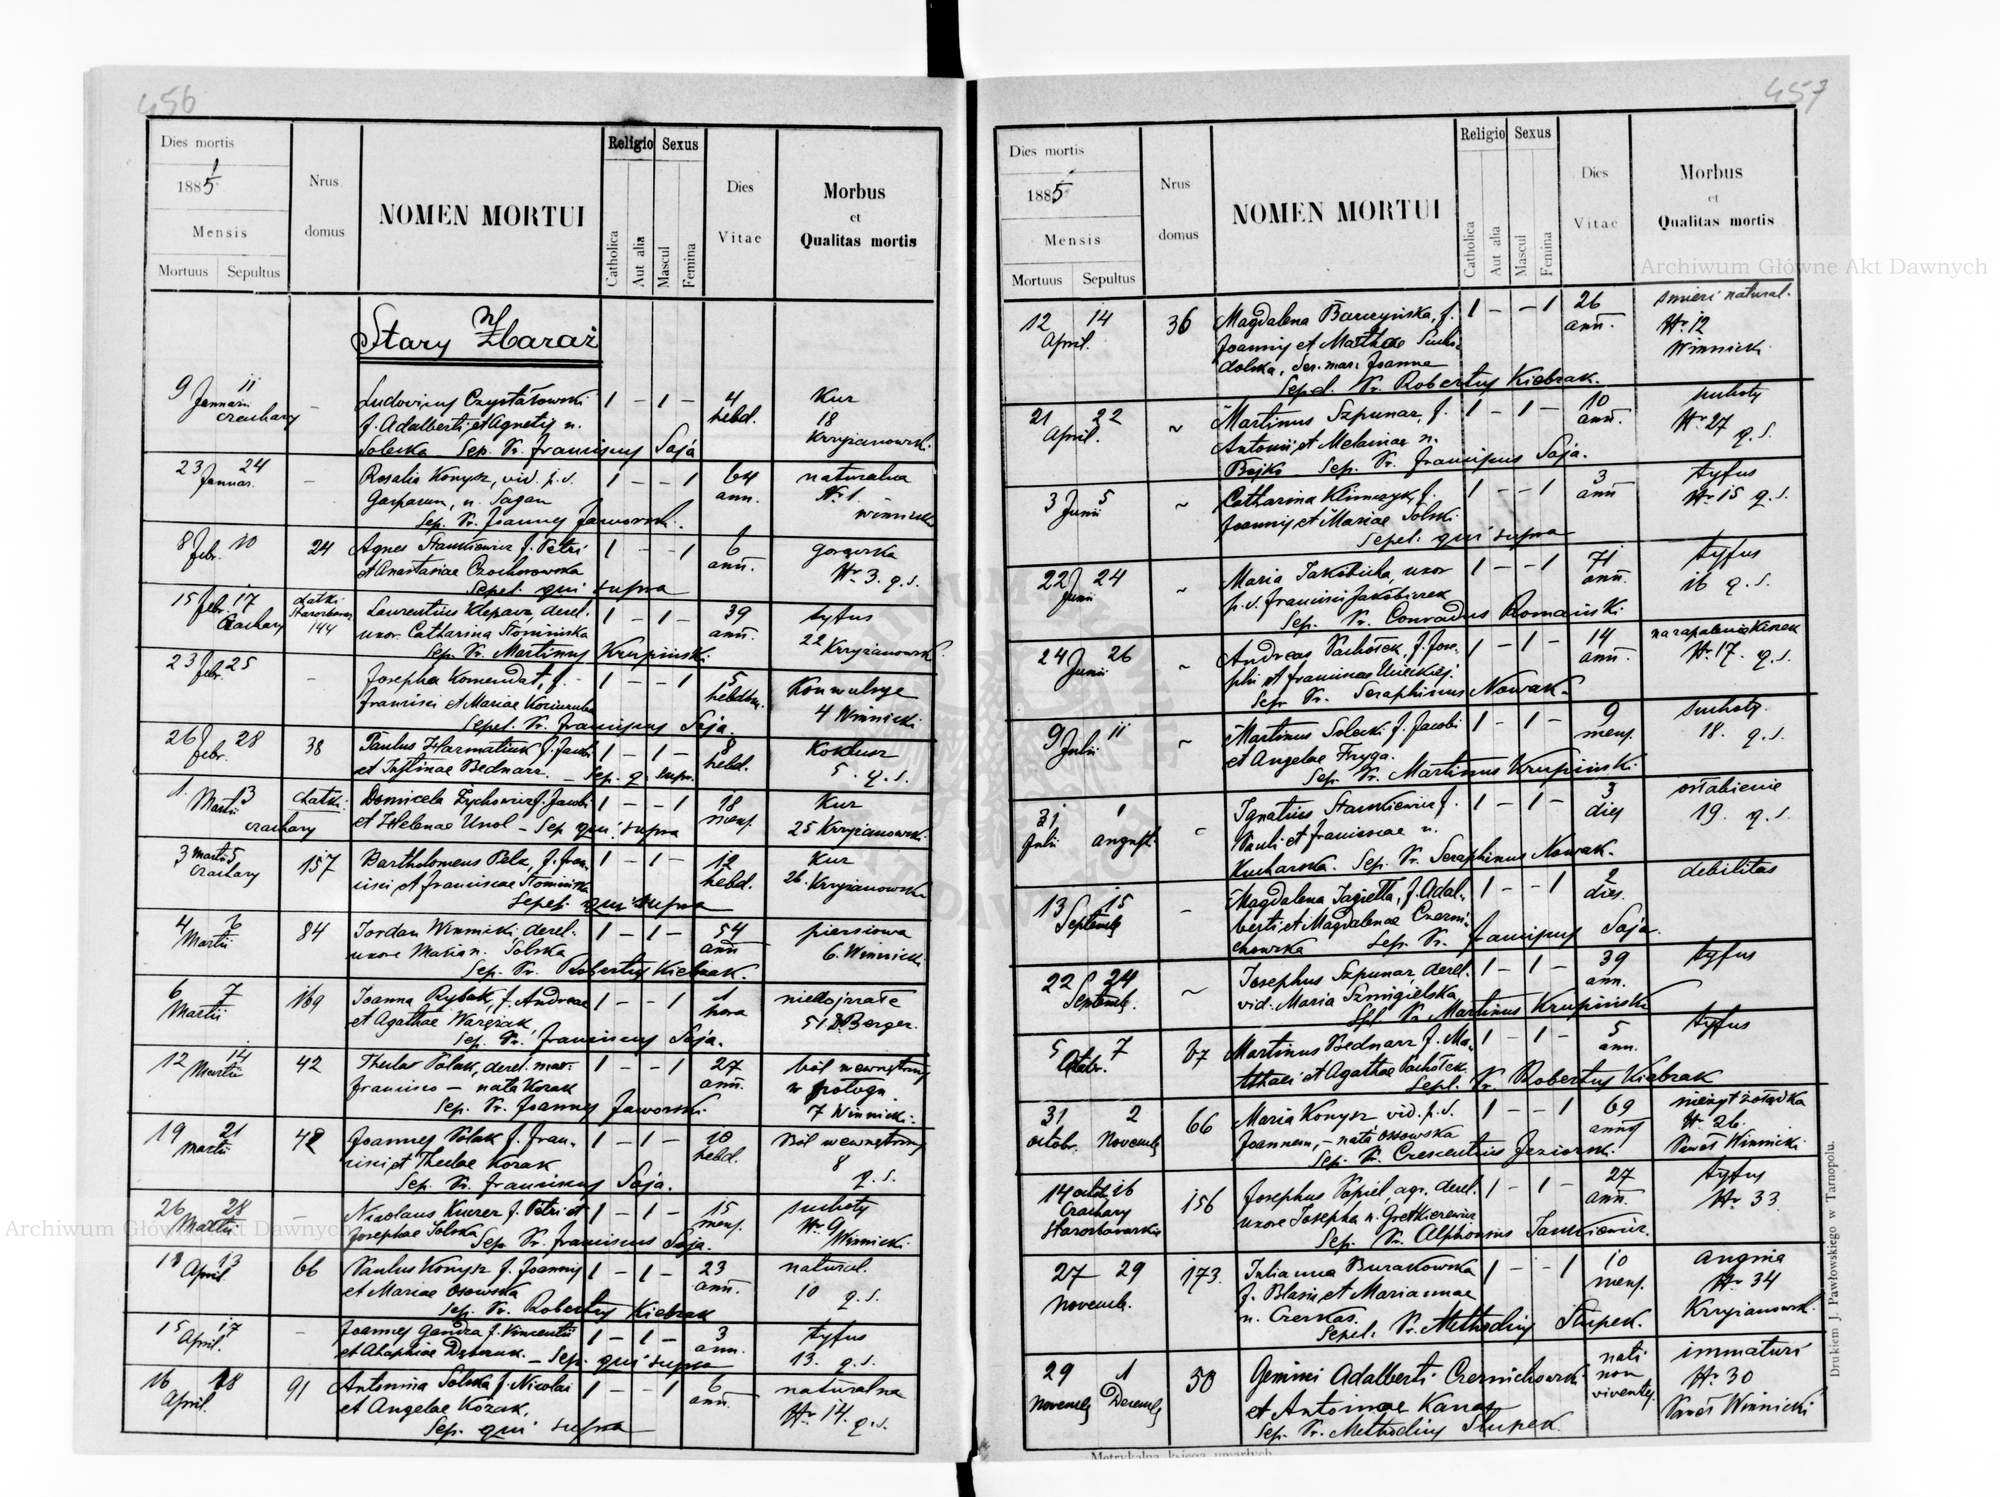 456
Dies mortis
1885
Mensis
Mortuus Sepultus
Nrus domus
NOMEN MORTUI
Religio Sexus
Catholica Aut alia Mascul Femina
Dies Vitae
Morbus et Qualitas mortis
Stary Zbaraż
9 11 Januarii - Ludovicus 1 - 1 - 4 Kur
f. Adalberti et Agnetis n. hebd. 18
Solecka Sep. Vr. Franciscus Saja Krzyżanowski
23 24 Januar. - Rosalia Konysz, vid. p. d. 1 - - 1 64 naturalna
Gasparum, n. Sagan ann. Nr. 1.
Sep. Vr. Joannes Jaworski. Winnicki
8 Febr. 10 24 Agnes Stankiewicz f. Petri 1 - - 1 6
et Anastasiae ann. Nr. 3. q. s.
Sepel. qui supra
15 Febr. 17 144 Laurentius Klepacz, derel. 1 - 1 - 39 tyfus
uxor. Catharina Słomińska ann. 22 Krzyżanowsk.
Sep. Vr. Martinus Krupinski
23 Febr. 25 - Josepha Komendat, f. 1 - - 1 5 Konwulsye
Francisci et Mariae hebdom. 4 Winnicki
Sepel. Vr. Franciscus Saja.
26 Febr. 28 38 Paulus Harmatiuk f. Jacobi 1 - 1 - 8 Koklusz
et Justinae Bednarz. - Sep. q. supr. hebd. 5. q. s.
1. 3 Martii Domicela Zychowicz f. Jacobi 1 - - 1 18 Kur
et Helenae - Sep. qui supra mens. 25 Krzyżanowsk.
3 Martii 5 157 Bartholomeus Pelz, f. Fran- 1 - 1 - 12 Kur
cisci et Franciscae Słomińska hebd. 26. Krzyżanowski
Sepel. qui supra
4 6 Martii 84 Jordan Winnicki derel. 1 - 1 - 54 piersiowa
uxore Maria n. Solska ann 6. Winnicki
Sep. Vr. Robertus Kiebzak.
6 7 Martii 169 Joanna Rybak, f. Andreae 1 - - 1 1 niedojrzałe
et Agathae hora Berger.
Sep. Vr. Franciscus Saja.
12 14 Martii 42 Thecla Polak, derel. mar. 1 - - 1 27 ból wewnętrzny
Francisco - nata Kozak ann. w połogu
Sep. Vr. Joannes Jaworski. 7 Winnicki.
19 21 Martii 42 Joannes Polak f. Fran- 1 - 1 - 10 Ból wewnętrzny
cisci et Theclae Kozak hebd. 8
Sep. Vr. Franciscus Saja. q. s.
26 28 Martii - Nicolaus f. Petri et 1 - 1 - 15 suchoty
Josephae Solska Sep. Vr. Franciscus Saja. mens. Nr. 9 Winnicki.
13 April 66 Paulus Konysz f. Joannis 1 - 1 - 23 natural.
et Mariae Osowska ann. 10 q. s.
Sep. Vr. Robertus Kiebzak
15 17 April. - Joannes Gandza f. Vincentii 1 - 1 - 3 tyfus
et - Sep. qui supra ann. 13. q. s.
16 18 April. 91 Antonina Solska f. Nicolai 1 - - 1 6 naturalna
et Angelae Kozak. ann. Nr. 14. q. s.
Sep. qui supra
457
Dies mortis
1885
Mensis
Mortuus Sepultus
Nrus domus
NOMEN MORTUI
Religio Sexus
Catholica Aut alia Mascul Femina
Dies Vitae
Morbus et Qualitas mortis
12 14 April. 36 Magdalena Barczyńska, f. 1 - - 1 26 natural.
Joannis et Marthae Sucho- ann. Nr. 12
dolska, der. mar. Joanne Winnicki.
Sepel. Vr. Robertus Kiebzak.
21 22 April. ~ Martinus Szpunar, f. 1 - 1 - 10 suchoty
Antonii et Melaniae n. ann. Nr. 27 q. s.
Bojko Sep. Vr. Franciscus Saja.
3 5 Junii ~ Catharina Klimczyk, f. 1 - - 1 3 tyfus
Joannis et Mariae Solski ann Nr. 15 q. s.
Sepel. qui supra
22 24 Junii ~ Maria Jakóbicka, uxor 1 - - 1 71 tyfus
p. d. Francisci ann. 16 q. s.
Sep. Vr. Conradus Romański.
24 26 Junii ~ Andreas Pachołek, f. Jose- 1 - 1 - 14 na zapalenie Kiszek
phi et Franciscae ann. Nr. 17. q. s.
Sep. Vr. Seraphinus Nowak.
9 11 Julii ~ Martinus Solecki f. Jacobi 1 - 1 - 9 suchoty.
et Angelae Fryga. mens. 18. q. s.
Sep. Vr. Martinus Krupinski.
31 Julii 1 augusti - Ignatius Stankiewicz f. 1 - 1 - 3 osłabienie
Pauli et Franciscae n. dies 19. q. s.
Kucharska. Sep. Vr. Seraphinus Nowak.
13 15 Septemb. - Magdalena Jagiełła, f. Adal- 1 - - 1 2 debilitas
berti et Magdalenae Czerni- dies
chowska Sep. Vr. Franciscus Saja.
22 24 Septemb. ~ Josephus Szpunar, derel. 1 - 1 - 39 tyfus
vid. Maria Szmigielska ann.
Sep. Vr. Martinus Krupinski
5 7 Octobr. 67 Martinus Bednarz f. Ma- 1 - 1 - 5 tyfus
tthaei et Agathae Pachołek. ann.
Sepel. Vr. Robertus Kiebzak
31 octobr. 2 Novemb. 66 Maria Konysz vid. p. d. 1 - - 1 69 nieżyt żołądka
Joannem, - nata Osowska annos Nr. 26.
Sep. Vr. Crescentius Jeziorski. Paweł Winnicki
14 16 156 Josephus Papiel, agr. derel. 1 - 1 - 27 tyfus
uxore Josepha n. ann. Nr. 33.
Sep. Vr. Alphonsus Jankiewicz.
27 29 Novemb. 173. Julianna Burakowska 1 - - 1 10 angina
f. Blasii et Mariannae mens. Nr. 34
n. Czerkas. Krzyżanowsk.
Sepel. Vr. Methodius Słupek.
29 Novemb. 1 Decemb. 50 Gemini Adalberti Czernichowski nati immaturi
et Antoninae Kanas non Nr. 30
Sep. Vr. Methodius Słupek. viventes. Paweł Winnicki
Drukiem J. Pawłowskiego w Tarnopolu.
Metrykalna księga umarłych
Archiwum Główne Akt Dawnych
Archiwum Główne Akt Dawnych